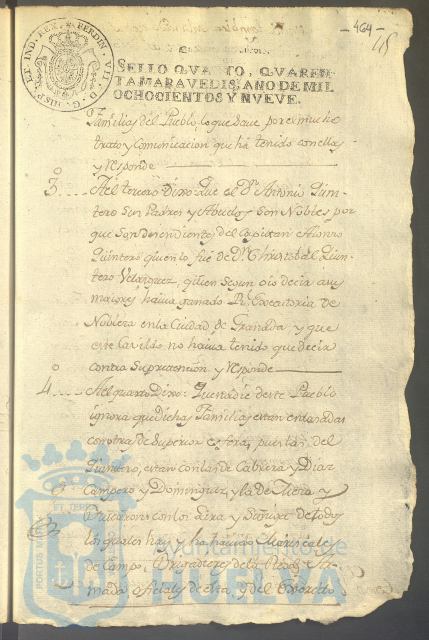 -464-
FERDIN. VII. D. G. HISP. ET IND. REX
SELLO QVARTO, QVAREN-
TA MARAVEDIS, AÑO DE MIL
OCHOCIENTOS Y NVEVE.
Familias del Pueblo lo que save por el mucho
trato y comunicacion que há tenido con ellas
y responde
3 Al tercero Dixo: Que el Dn. Antonio Quin-
tero sus Padres y Abuelos son Nobles por
que son descendientes del Capitan Alonso
Quintero quien lo fue de Dn. Christoval Quin-
tero Velazquez, quien segun oió decir a sus
maiores havia ganado Rl. Executoria de
Nobleza en la Ciudad de Granada y que
este Cavildo no havia tenido que decir
contra su pretencion y responde
4 Al quarto Dixo: Que nadie de este Pueblo
ignora que dichas Familias estan enlazadas
con otras de superior esfera, pues las del
Quintero, estan con las de Cabrera y Diaz
Campero y Dominguez, y la de
con los y Zuñiga de todos
los quales hay y ha havido Mariscales
de Campo, Brigadieres de la Rl. Ar-
mada oficiales de esta, y del Exercito
Ayuntamiento de
HUELVA
PORTUS
ET TERRAE